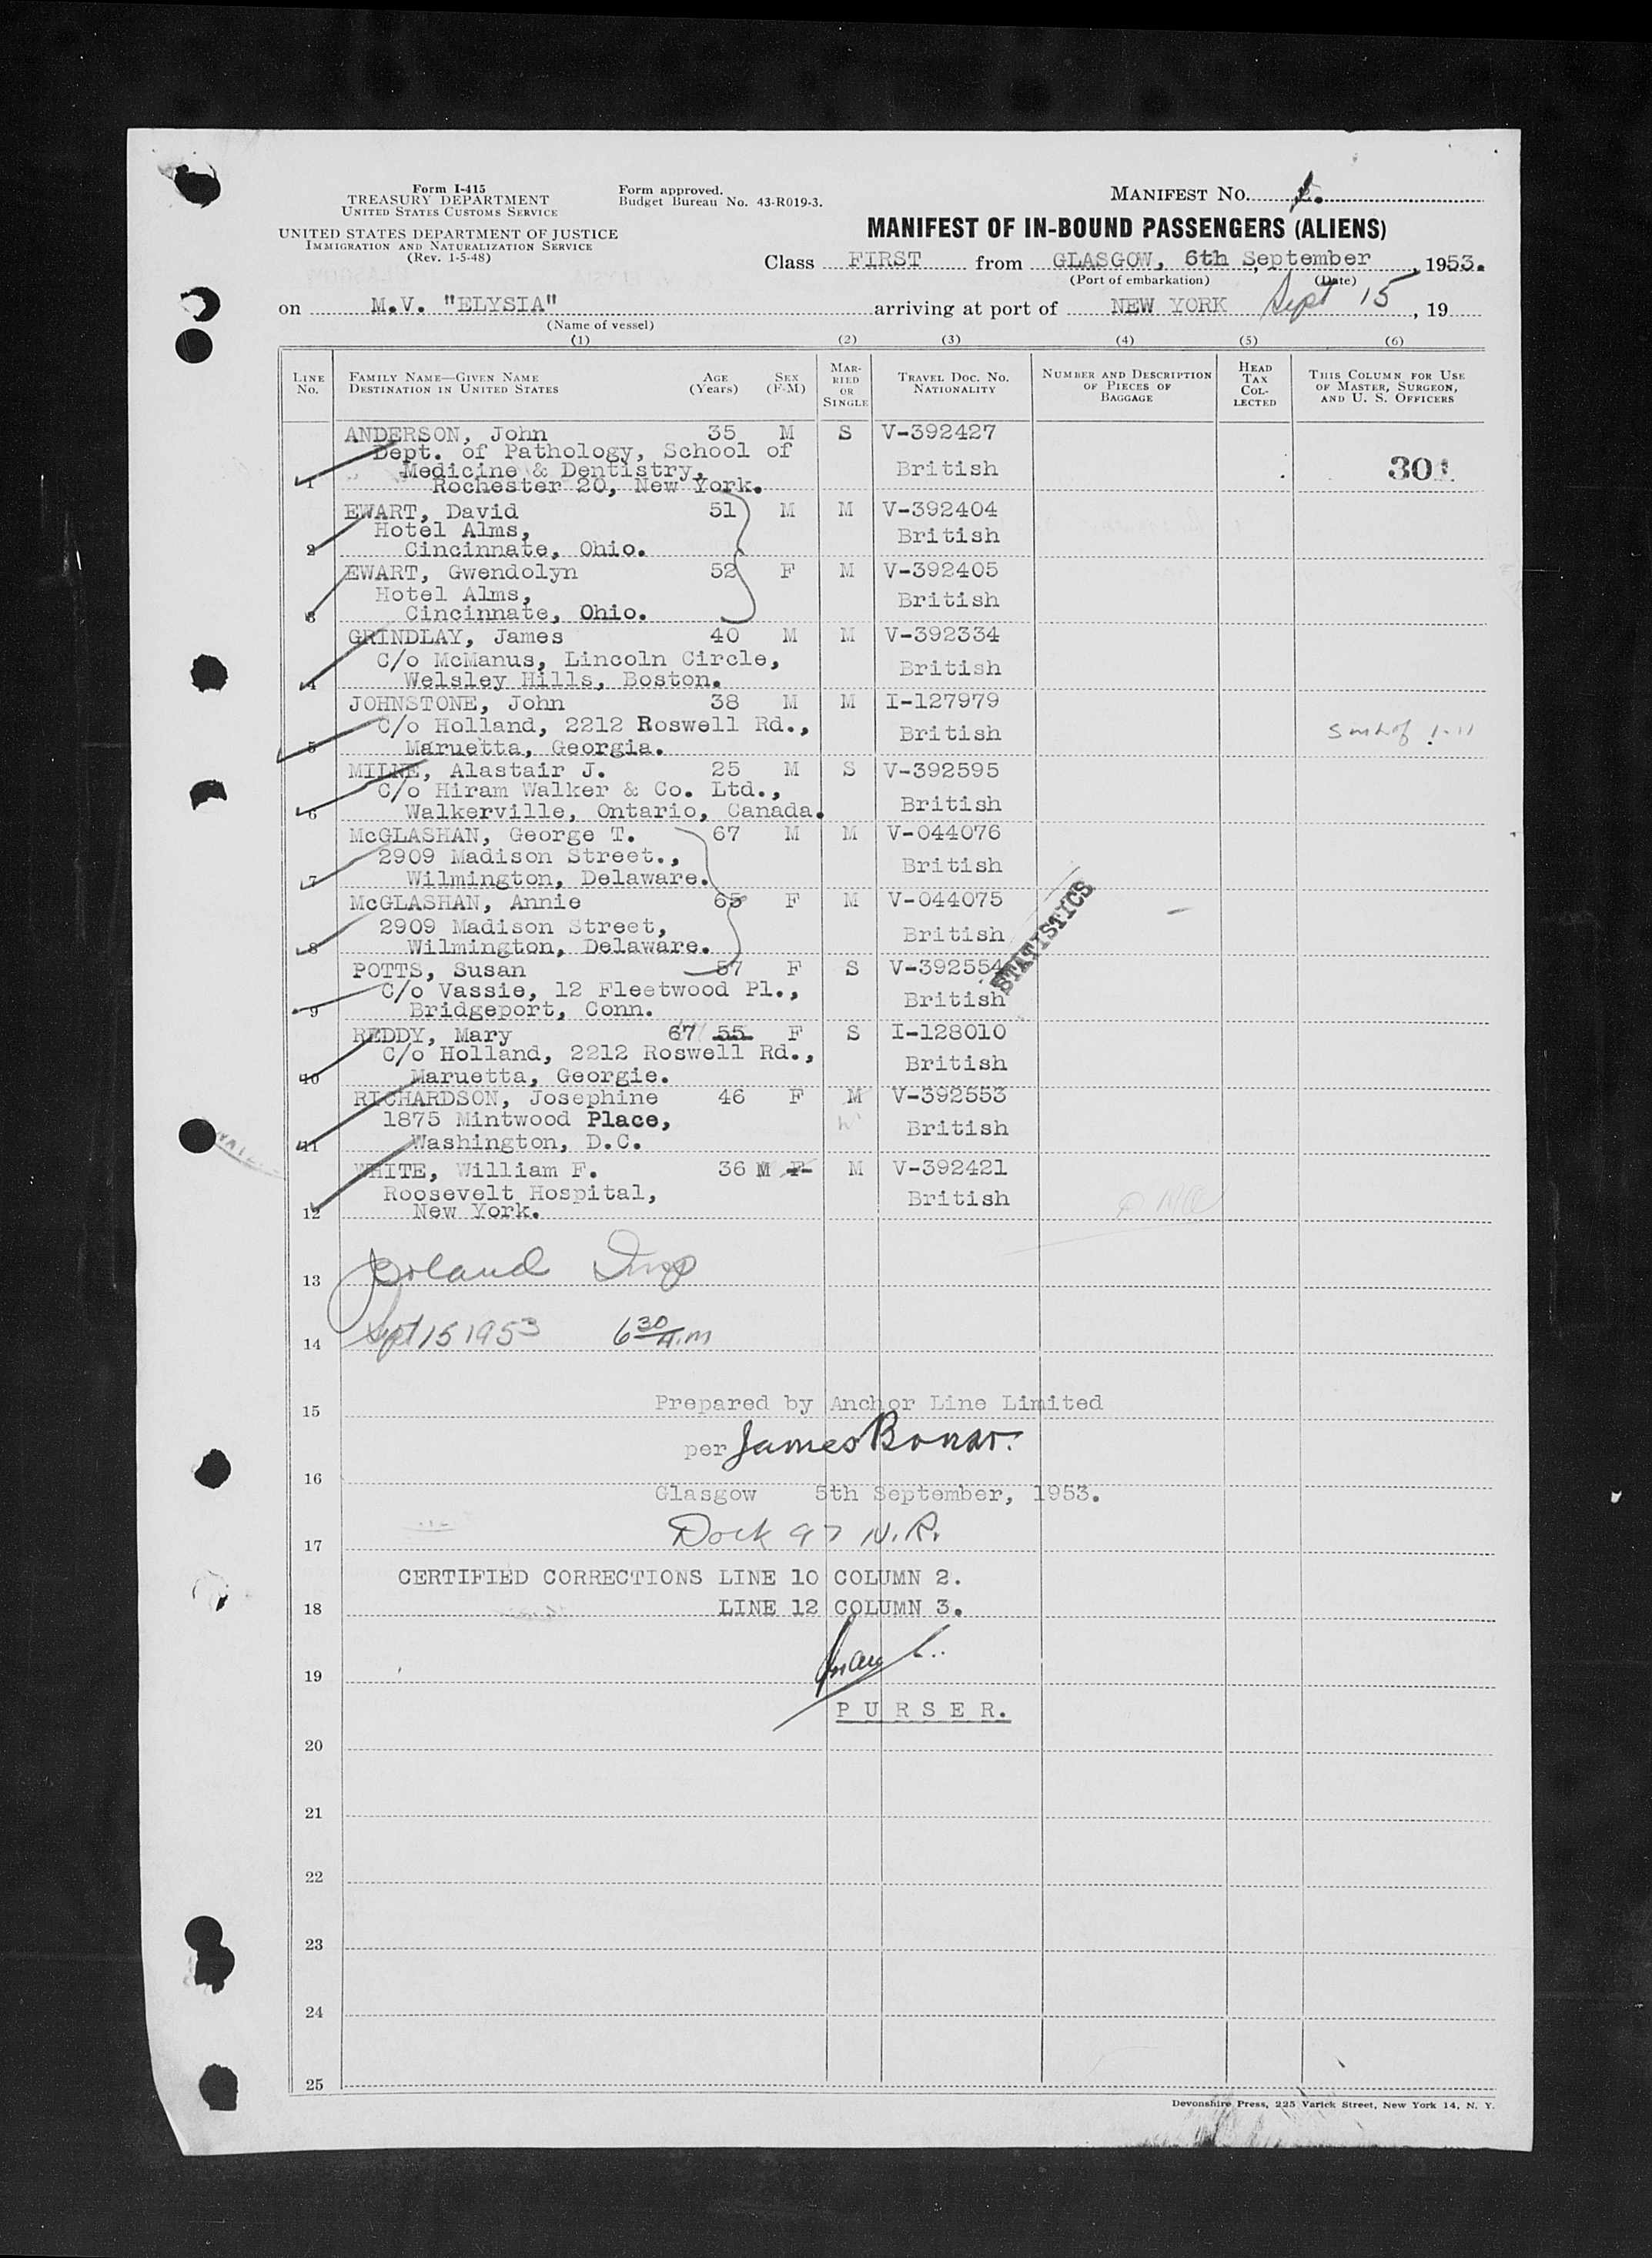 Form I-415
TREASURY DEPARTMENT
UNITED STATES CUSTOMS SERVICE
UNITED STATES DEPARTMENT OF JUSTICE
IMMIGRATION AND NATURALIZATION SERVICE
(Rev. 1-5-48)
Form approved.
Budget Bureau No. 43-R019-3.
MANIFEST No. 1.
MANIFEST OF IN-BOUND PASSENGERS (ALIENS)
Class FIRST from GLASGOW, 6th September, 1953.
(Port of embarkation) (Date)
on M.V. "ELYSIA" arriving at port of NEW YORK Sept 15, 19
(Name of vessel)
(1) (2) (3) (4) (5) (6)
LINE No.
FAMILY NAME—GIVEN NAME
DESTINATION IN UNITED STATES
AGE (Years)
SEX (F-M)
MARRIED OR SINGLE
TRAVEL DOC. NO.
NATIONALITY
NUMBER AND DESCRIPTION OF PIECES OF BAGGAGE
HEAD TAX COLLECTED
THIS COLUMN FOR USE OF MASTER, SURGEON, AND U. S. OFFICERS
ANDERSON, John 35 M S V-392427
Dept. of Pathology, School of
Medicine & Dentistry, British 301
1 Rochester 20, New York.
EWART, David 51 M M V-392404
Hotel Alms, British
2 Cincinnate, Ohio.
EWART, Gwendolyn 52 F M V-392405
Hotel Alms, British
3 Cincinnate, Ohio.
GRINDLAY, James 40 M M V-392334
C/o McManus, Lincoln Circle, British
4 Welsley Hills, Boston.
JOHNSTONE, John 38 M M I-127979
C/o Holland, 2212 Roswell Rd., British
5 Maruetta, Georgia.
MILNE, Alastair J. 25 M S V-392595
C/o Hiram Walker & Co. Ltd., British
6 Walkerville, Ontario, Canada.
McGLASHAN, George T. 67 M M V-044076
2909 Madison Street., British
7 Wilmington, Delaware.
McGLASHAN, Annie 65 F M V-044075
2909 Madison Street, British
8 Wilmington, Delaware.
STATISTICS
POTTS, Susan 57 F S V-392554
C/o Vassie, 12 Fleetwood Pl., British
9 Bridgeport, Conn.
REDDY, Mary 67 55 F S I-128010
C/o Holland, 2212 Roswell Rd., British
10 Maruetta, Georgie.
RICHARDSON, Josephine 46 F M V-392553
1875 Mintwood Place, British
11 Washington, D.C.
WHITE, William F. 36 M F M V-392421
Roosevelt Hospital, British
12 New York.
13 Boland Insp
14 Sept 15 1953 6 30 A.m
15 Prepared by Anchor Line Limited
per James Bonar.
16
Glasgow 5th September, 1953.
17 Dock 97 N.R.
CERTIFIED CORRECTIONS LINE 10 COLUMN 2.
18 LINE 12 COLUMN 3.
19
PURSER.
20
21
22
23
24
25
Devonshire Press, 225 Varick Street, New York 14, N. Y.